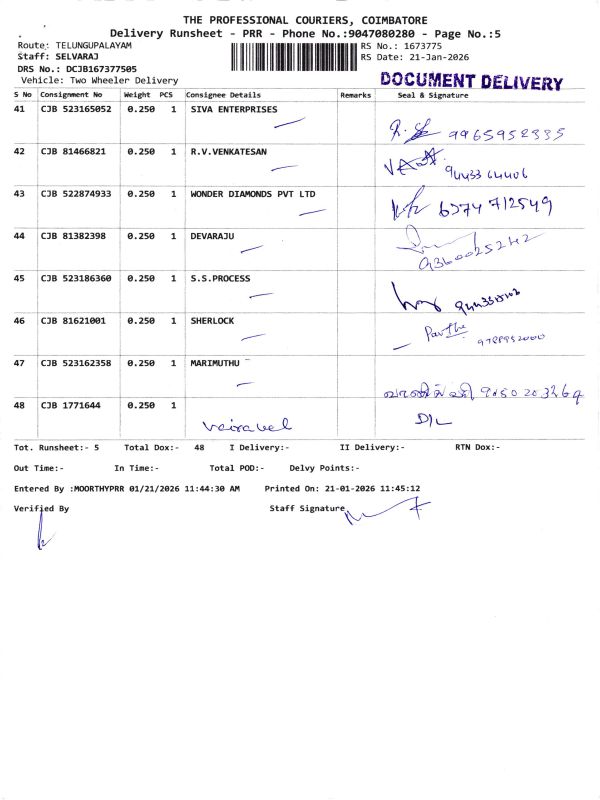 THE PROFESSIONAL COURIERS, COIMBATORE
Delivery Runsheet - PRR - Phone No.:9047080280 - Page No.:5
Route: TELUNGUPALAYAM
RS No.: 1673775
Staff: SELVARAJ
RS Date: 21-Jan-2026
DRS No.: DCJB167377505
Vehicle: Two Wheeler Delivery
DOCUMENT DELIVERY
S No Consignment No Weight PCS Consignee Details Remarks Seal & Signature
41 CJB 523165052 0.250 1 SIVA ENTERPRISES
9965952335
42 CJB 81466821 0.250 1 R.V.VENKATESAN
9443364406
43 CJB 522874933 0.250 1 WONDER DIAMONDS PVT LTD
6374712549
44 CJB 81382398 0.250 1 DEVARAJU
9360025242
45 CJB 523186360 0.250 1 S.S.PROCESS
46 CJB 81621001 0.250 1 SHERLOCK
47 CJB 523162358 0.250 1 MARIMUTHU
48 CJB 1771644 0.250 1
D/L
Tot. Runsheet:- 5 Total Dox:- 48 I Delivery:- II Delivery:- RTN Dox:-
Out Time:- In Time:- Total POD:- Delvy Points:-
Entered By :MOORTHYPRR 01/21/2026 11:44:30 AM Printed On: 21-01-2026 11:45:12
Verified By Staff Signature